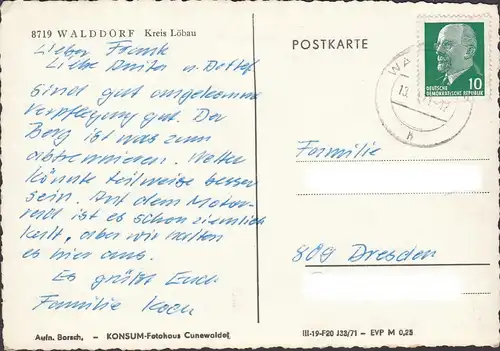 8719 WALDDORF Kreis Löbau
Lieber Frank
Liebe Anita u. Detlef
Sind gut angekommen
Verpflegung gut. Der
Berg ist was zum
abtrennen. Wetter
könnte teilweise besser
sein. Auf dem Motor-
rad ist es schon ziemlich
kalt, aber wir halten
es hier aus.
Es grüßt Euch
Familie Koch
Aufn. Borsch, – KONSUM-Fotohaus Cunewalde
POSTKARTE
DEUTSCHE
DEMOKRATISCHE REPUBLIK
10
WA
13
Familie
809 Dresden
III-19-F20 J33/71 – EVP M 0,25